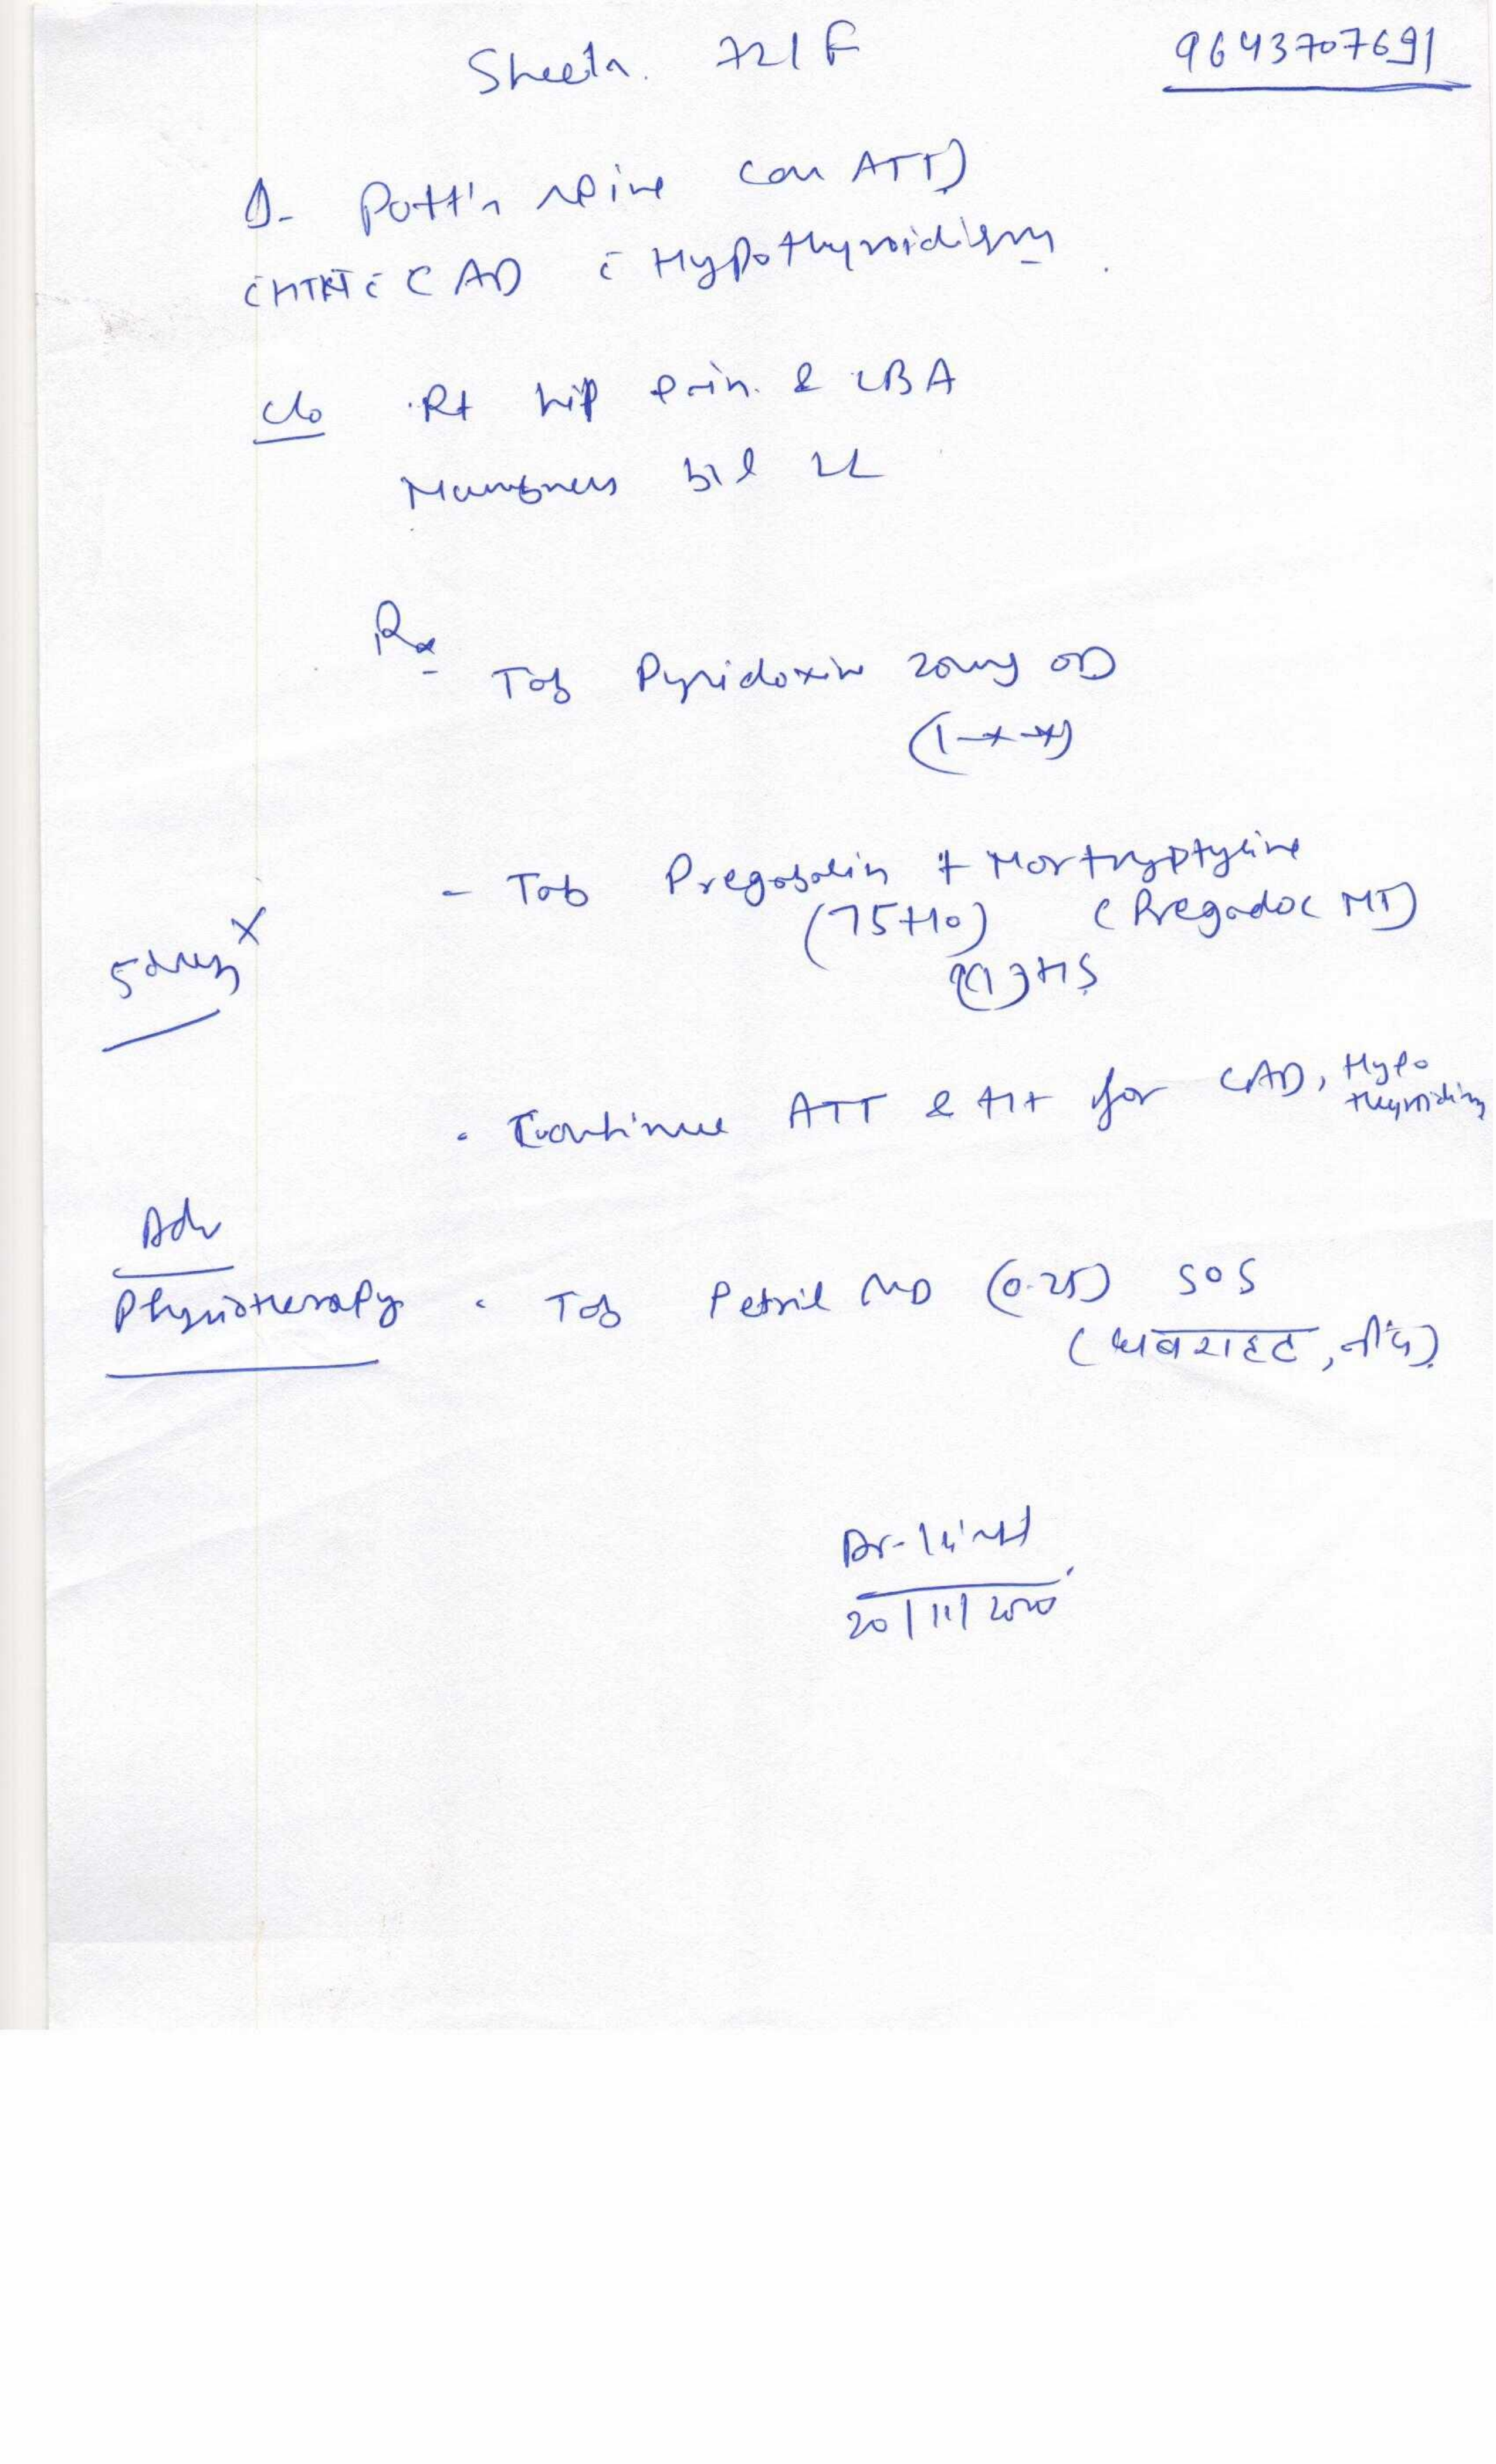 Sheela. 72/F
9643707691
Δ- Pott's spine (on ATT)
c̄ HTN c̄ CAD c̄ Hypothyroidism
c/o Rt hip pain & LBA
Numbness b/l LL
Rx
Tab Pyridoxine 20mg OD
(1-x-x)
- Tab Pregabalin + Nortryptyline
(75+10) (Pregadoc NT)
HS
x 5 days
Continue ATT & t/t for CAD, Hypo
thyroidism
Adv
Physiotherapy
Tab Petril MD (0.25) SOS
(घबराहट, नींद)
Dr.
20/11/2020